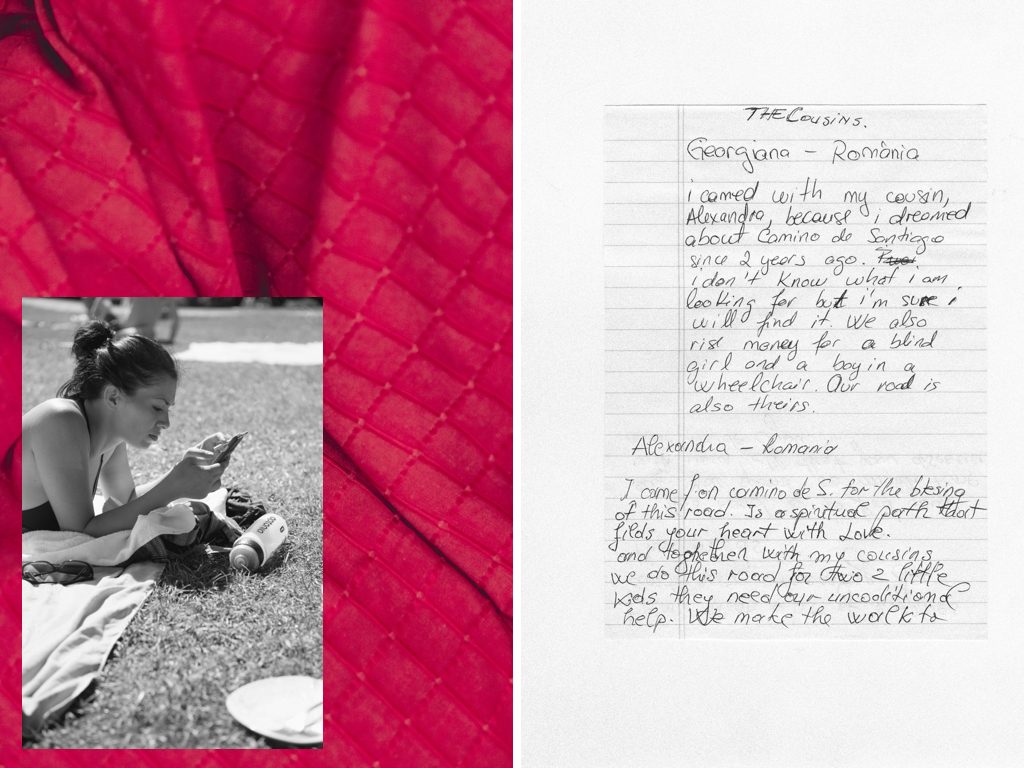 THE Cousins.
Georgiana - România
i camed with my cousin,
Alexandra, because i dreamed
about Camino de Santiago
since 2 years ago.
i don't know what i am
looking for but i'm sure i
will find it. We also
rise money for a blind
girl and a boy in a
wheelchair. Our road is
also theirs.
Alexandra - Romania
I came on camino de S. for the blesing
of this road. Is a spiritual path that
fields your heart with Love.
and toghether with my cousins
we do this road for two 2 little
kids they need our uncoditional
help. We make the walk to